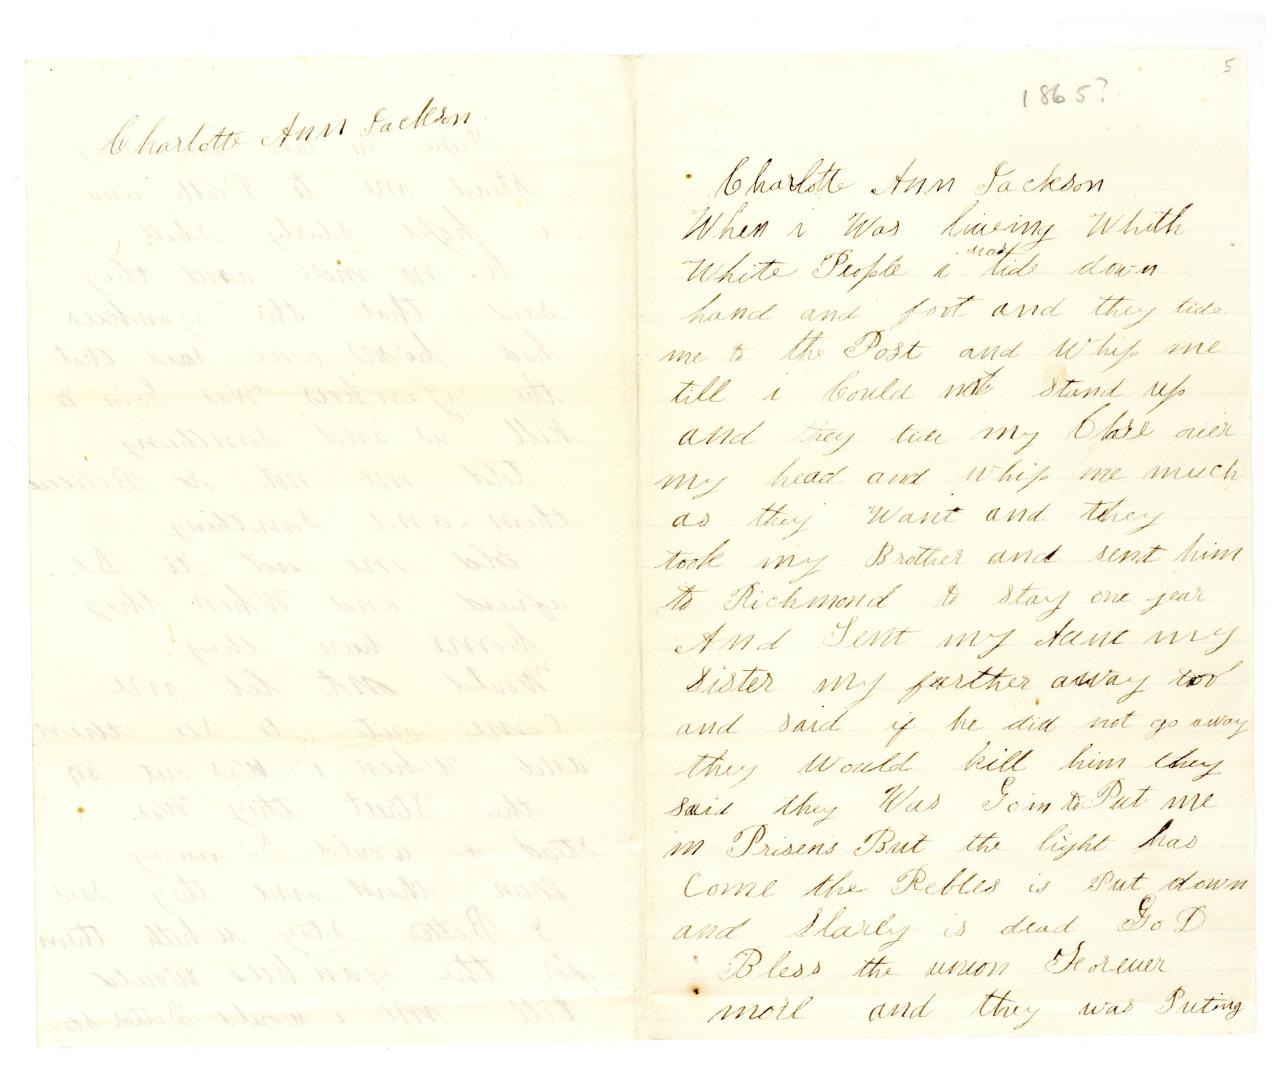 Charlotte Ann Jackson.
5
1865?
Charlotte Ann Jackson
When i Was liveing Whith
White People i was tide down
hand and foot and they tide
me to the Post and Whip me
till i Could not stand up
and they tide my Close over
my head and whip me much
as they Want and they
took my Brother and sent him
to Richmond to stay one year
And Sent my Aunt my
Sister my farther away too
and said if he did not go away
they Would kill him they
said they Was Goin to Put me
in Prisens But the light has
Come the Rebles is Put down
and Slarly is dead GoD
Bless the union Forever
more and they was Puting